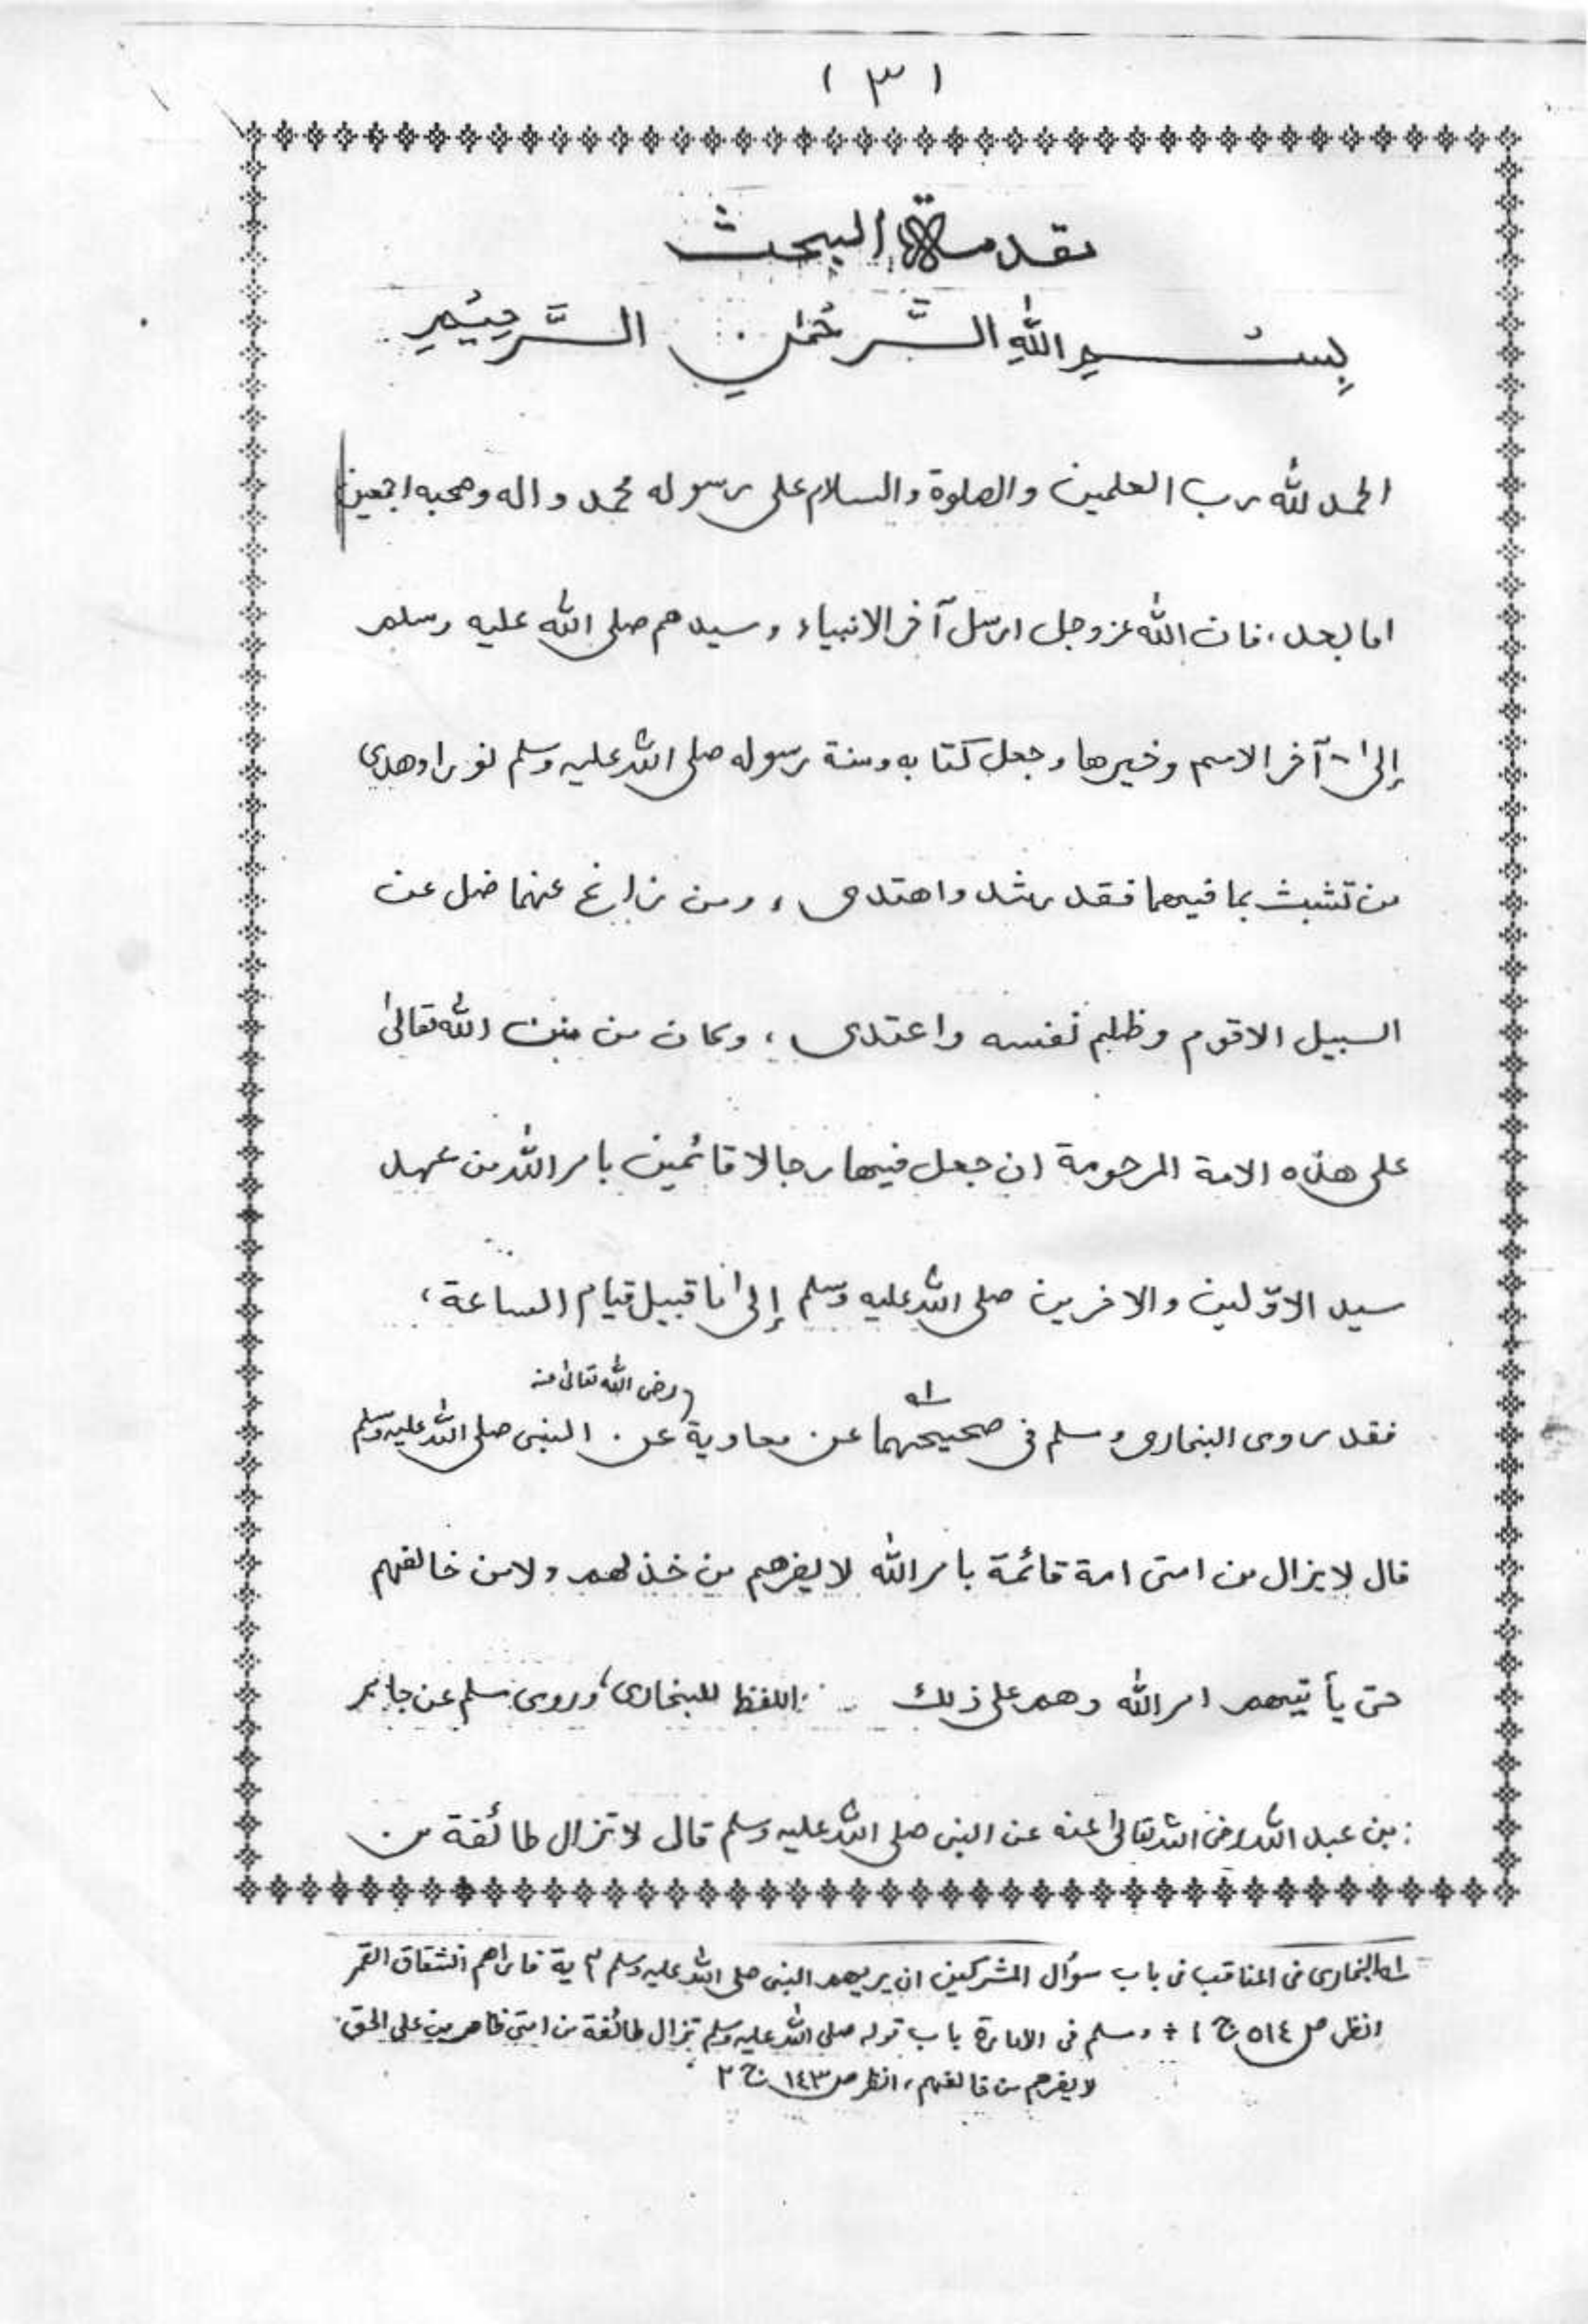 ( ٣ )
مقدمة البحث
بِسْمِ اللّٰهِ الرَّحْمٰنِ الرَّحِيْمِ
الحمد للّٰه رب العلمين والصلوة والسلام على رسوله محمد واله وصحبه اجمعين
اما بعد، فان اللّٰه عز وجل ارسل آخر الانبياء وسيدهم صلى اللّٰه عليه وسلم
إلىٰ آخر الامم وخيرها وجعل كتابه وسنة رسوله صلى اللّٰه عليه وسلم نورا وهدى
من تشبث بما فيهما فقد رشد واهتدى، ومن زاغ عنهما ضل عن
السبيل الاقوم وظلم نفسه واعتدى، وكان من منن اللّٰه تعالىٰ
على هذه الامة المرحومة ان جعل فيها رجالا قائمين بامر اللّٰه من عهد
سيد الاوّلين والاخرين صلى اللّٰه عليه وسلم إلىٰ ما قبيل قيام الساعة،
فقد روى البخارى ومسلم فى صحيحيهما لـه عن معاوية (رضى اللّٰه تعالىٰ عنه عن النبى صلى اللّٰه عليه وسلم
قال لا يزال من امتى امة قائمة بامر اللّٰه لا يضرهم من خذلهم ولا من خالفهم
حتى يأتيهم امر اللّٰه وهم على ذلك اللفظ للبخارى، وروى مسلم عن جابر
بن عبد اللّٰه رضى اللّٰه تعالىٰ عنه عن النبى صلى اللّٰه عليه وسلم قال لا تزال طائفة من
لـه البخارى فى المناقب فى باب سؤال المشركين ان يريهم النبى صلى اللّٰه عليه وسلم آية فاراهم انشقاق القمر
انظر ص ٥١٤ ج ١ + ومسلم فى الامارة باب قوله صلى اللّٰه عليه وسلم تزال طائفة من امتى ظاهرين على الحق
لا يضرهم من خالفهم، انظر ص ١٤٣ ج ٢